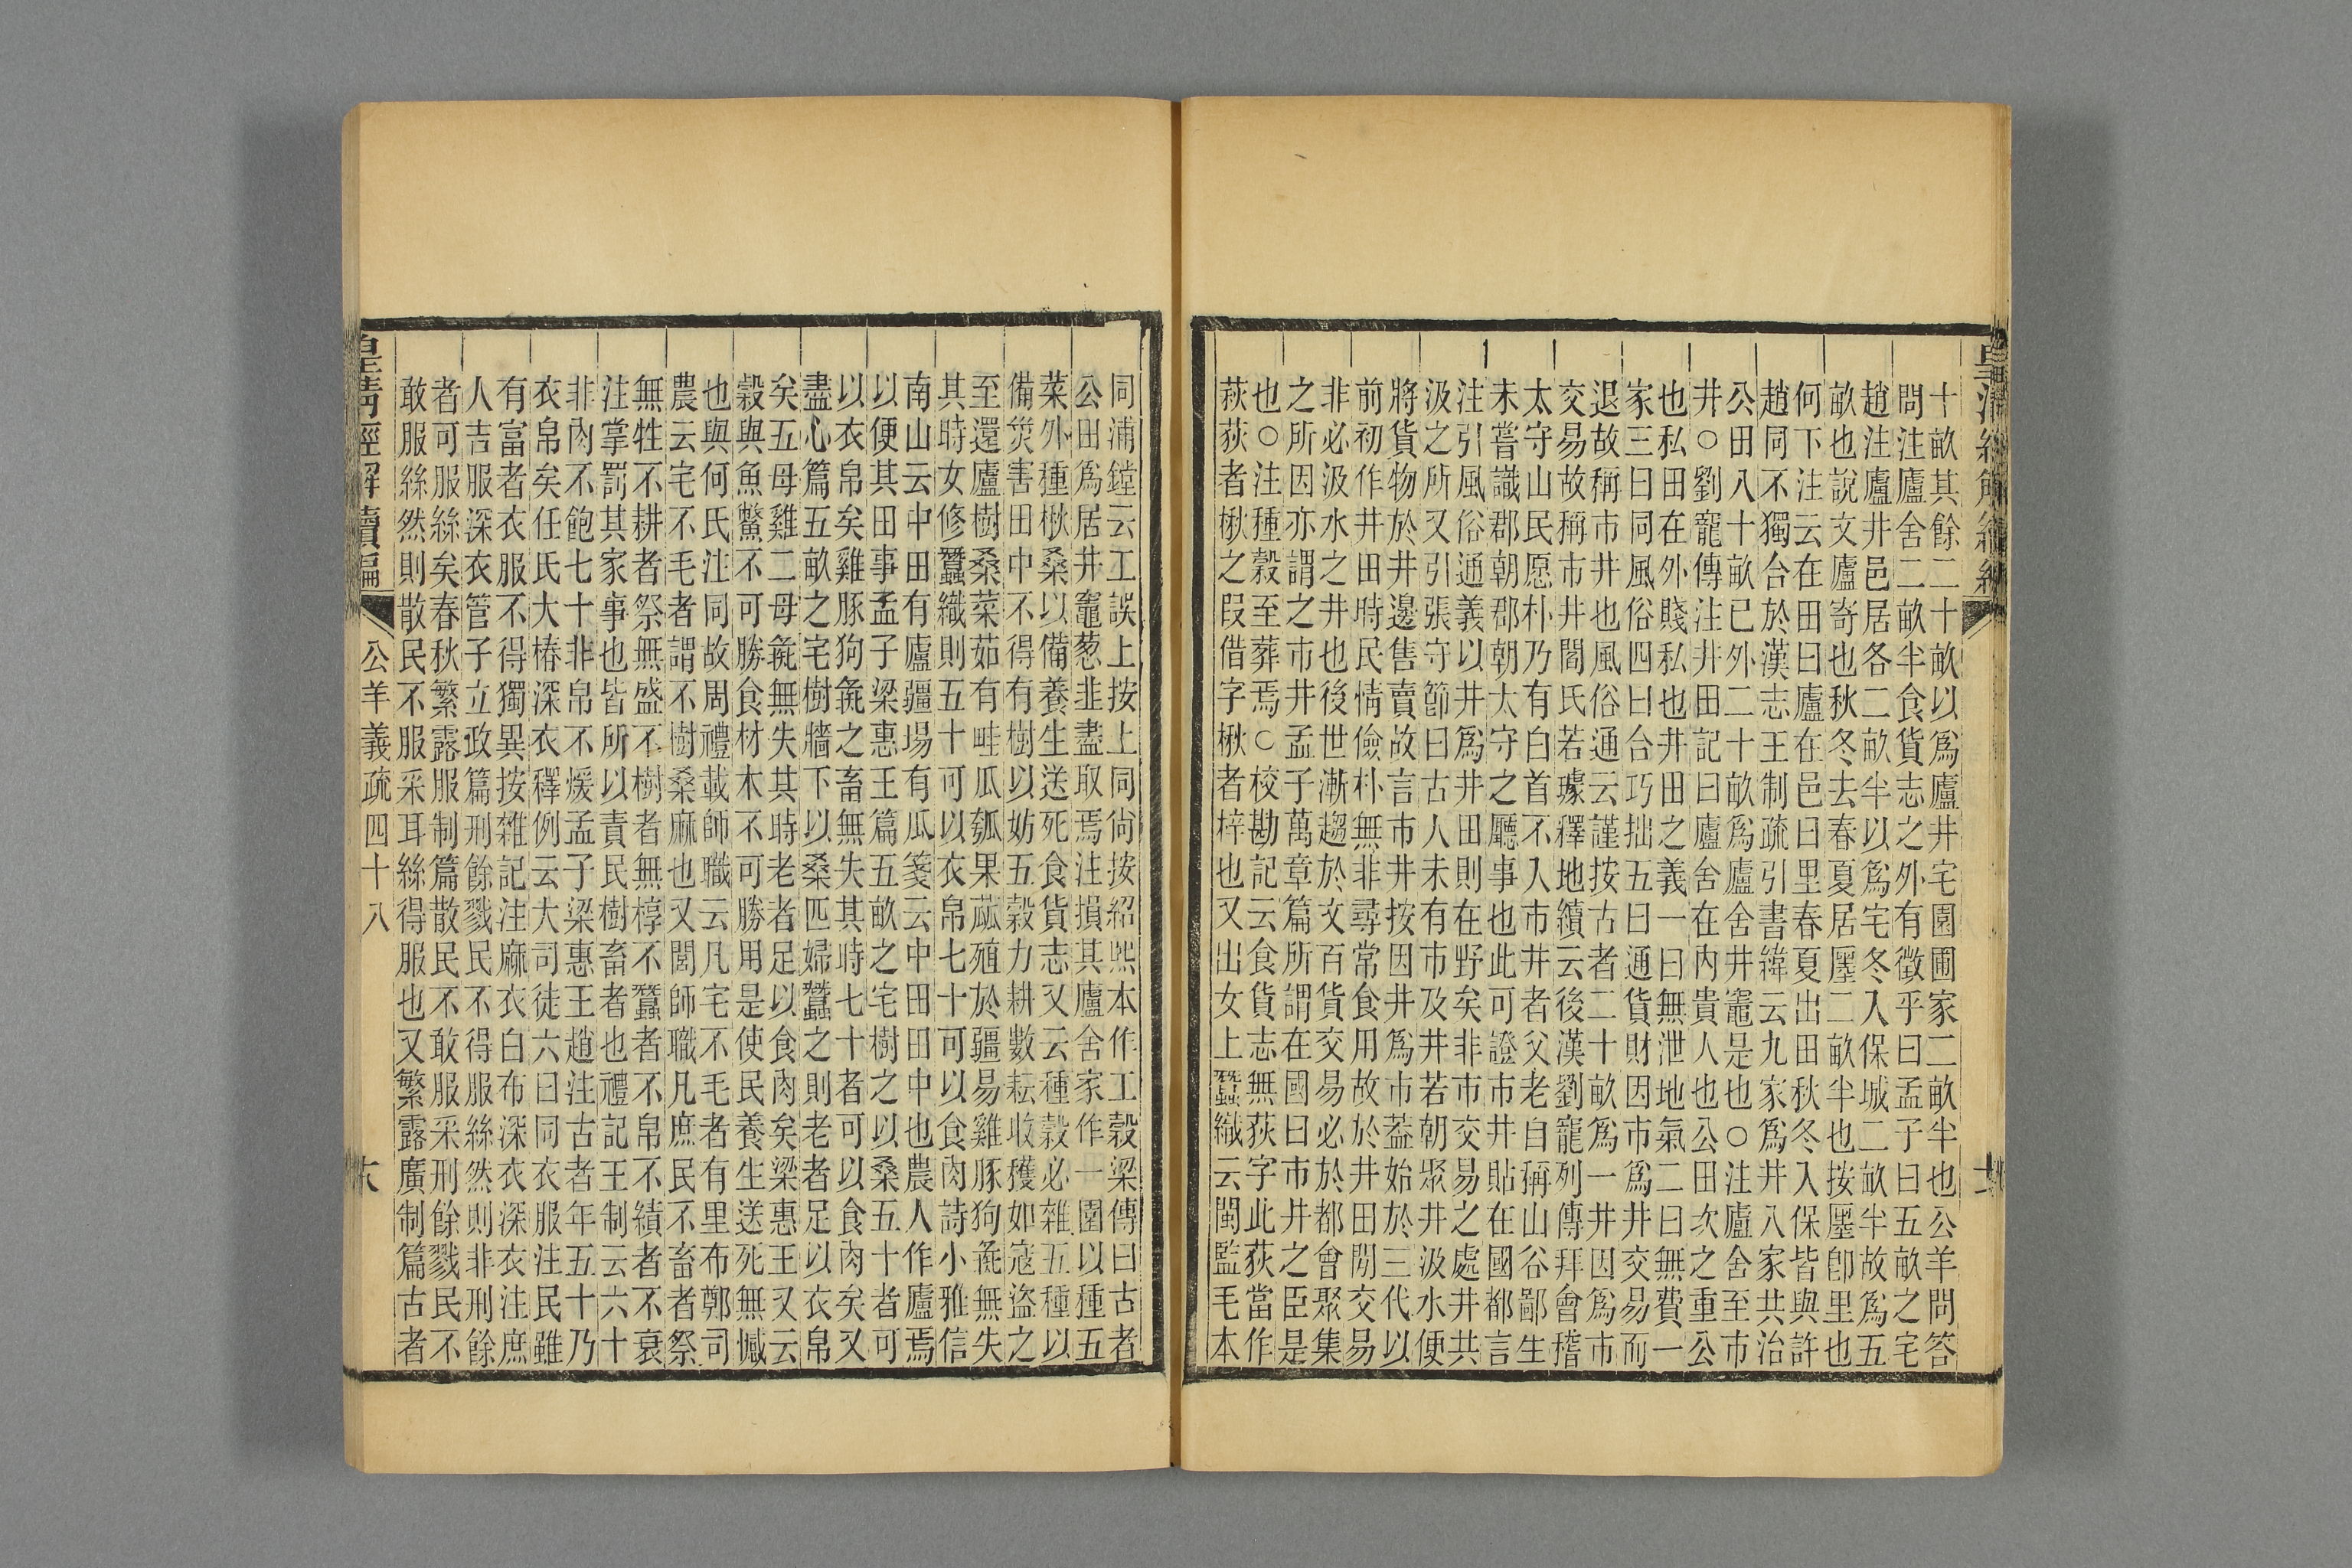 十畝其餘二十畝以爲廬井宅園圃家二畝半也公羊問答
問注廬舍二畝半食貨志之外有徵乎曰孟子曰五畝之宅
趙注廬井邑居各二畝半以爲宅冬入保城二畝半故爲五
畝也說文廬寄也秋冬去春夏居廛二畝半也按廛卽里也
何下注云在田曰廬在邑曰里春夏出田秋冬入保皆與許
趙同不獨合於漢志王制疏引書緯云九家爲井八家共治
公田八十畝已外二十畝爲廬舍井竈是也○注廬舍至市
井○劉寵傳注井田記曰廬舍在內貴人也公田次之重公
也私田在外賤私也井田之義一曰無泄地氣二曰無費一
家三曰同風俗四曰合巧拙五曰通貨財因市爲井交易而
退故稱市井也風俗通云謹按古者二十畝爲一井因爲市
交易故稱市井閻氏若璩釋地續云後漢劉寵列傳拜會稽
太守山民愿朴乃有白首不入市井者父老自稱山谷鄙生
未嘗識郡朝郡朝太守之廳事也此可證市井貼在國都言
注引風俗通義以井爲井田則在野矣非市交易之處井共
汲之所又引張守節曰古人未有市及井若朝聚井汲水便
將貨物於井邊售賣故言市井按因井爲市葢始於三代以
前初作井田時民情儉朴無非尋常食用故於井田閒交易
非必汲水之井也後世漸趨於文百貨交易必於都會聚集
之所因亦謂之市井孟子萬章篇所謂在國曰市井之臣是
也○注種穀至葬焉○校勘記云食貨志無荻字此荻當作
萩荻者楸之叚借字楸者梓也又出女上蠶織云閩監毛本
同浦鏜云工誤上按上同尙按紹熙本作工穀梁傳曰古者
公田爲居井竈葱韭盡取焉注損其廬舍家作一園以種五
菜外種楸桑以備養生送死食貨志又云種穀必雜五種以
備災害田中不得有樹以妨五穀力耕數耘收穫如寇盜之
至還廬樹桑菜茹有畦瓜瓠果蓏殖於疆易雞豚狗彘無失
其時女修蠶織則五十可以衣帛七十可以食肉詩小雅信
南山云中田有廬疆場有瓜箋云中田田中也農人作廬焉
以便其田事孟子梁惠王篇五畝之宅樹之以桑五十者可
以衣帛矣雞豚狗彘之畜無失其時七十者可以食肉矣又
盡心篇五畝之宅樹牆下以桑匹婦蠶之則老者足以衣帛
矣五母雞二母彘無失其時老者足以食肉矣梁惠王又云
穀與魚鼈不可勝食材木不可勝用是使民養生送死無憾
也與何氏注同故周禮載師職云凡宅不毛者有里布鄭司
農云宅不毛者謂不樹桑麻也又閭師職凡庶民不畜者祭
無牲不耕者祭無盛不樹者無椁不蠶者不帛不績者不衰
注掌罰其家事也皆所以責民樹畜者也禮記王制云六十
非肉不飽七十非帛不煖孟子梁惠王趙注古者年五十乃
衣帛矣任氏大椿深衣釋例云大司徒六曰同衣服注民雖
有富者衣服不得獨異按雜記注麻衣白布深衣深衣注庶
人吉服深衣管子立政篇刑餘戮民不得服絲然則非刑餘
者可服絲矣春秋繁露服制篇散民不敢服采刑餘戮民不
敢服絲然則散民不服采耳絲得服也又繁露廣制篇古者
皇淸經解續編 公羊義疏四十八